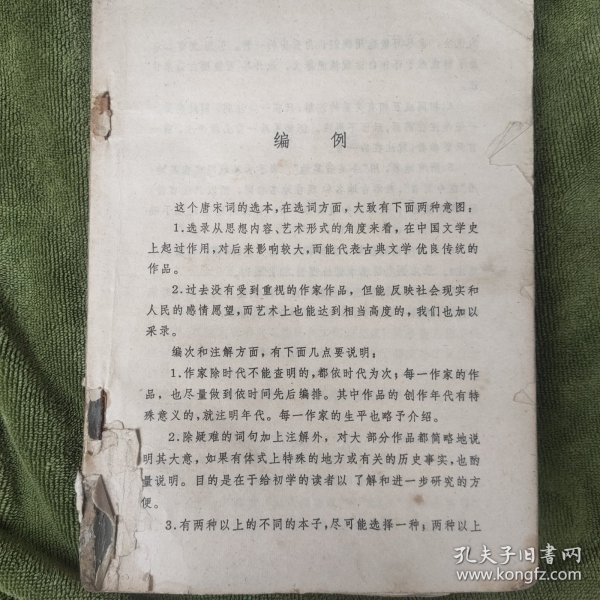 编 例
这个唐宋词的选本，在选词方面，大致有下面两种意图：
1.选录从思想内容、艺术形式的角度来看，在中国文学史
上起过作用，对后来影响较大，而能代表古典文学优良传统的
作品。
2.过去没有受到重视的作家作品，但能反映社会现实和
人民的感情愿望，而艺术上也能达到相当高度的，我们也加以
采录。
编次和注解方面，有下面几点要说明：
1.作家除时代不能查明的，都依时代为次；每一作家的作
品，也尽量做到依时间先后编排。其中作品的创作年代有特
殊意义的，就注明年代。每一作家的生平也略予介绍。
2.除疑难的词句加上注解外，对大部分作品都简略地说
明其大意，如果有体式上特殊的地方或有关的历史事实，也酌
量说明。目的是在于给初学的读者以了解和进一步研究的方
便。
3.有两种以上的不同的本子，尽可能选择一种；两种以上
孔夫子旧书网
www.kongfz.com